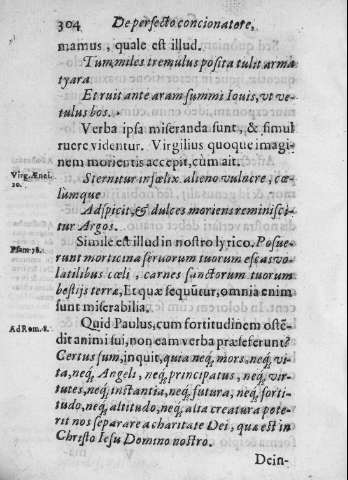 304 De perfecto concionatore,
mamus, quale est illud.
Tum miles tremulus posita tulit arma
tyara
Et ruit ante aram summi Iouis, vt ve-
tulus bos.
Verba ipsa miseranda sunt, & simul
ruere videntur. Virgilius quoque imagi
nem morientis accepit, cùm ait.
Virg. Ænei.
10.
Sternitur infœlix alieno vulnere, cœ-
lúmque
Adspicit, & dulces moriens reminisci-
tur Argos.
Simile est illud in nostro lyrico. Posue-
Psam. 78.
runt morticina seruorum tuorum escas vo-
latilibus cœli, carnes sanctorum tuorum
bestijs terræ, Et quæ sequũtur, omnia enim
sunt miserabilia.
Ad Rom. 8.
Quid Paulus, cum fortitudinem ostẽ-
dit animi sui, non eam verba præseferunt?
Certus sum, inquit, quia neq; mors, neq; vi-
ta, neq; Angeli, neq; principatus, neq; vir-
tutes, neq; instantia, neq; futura, neq; forti-
tudo, neq; altitudo, neq; alta creatura pote-
rit nos separare a charitate Dei, quæ est in
Christo Iesu Domino nostro.
Dein-